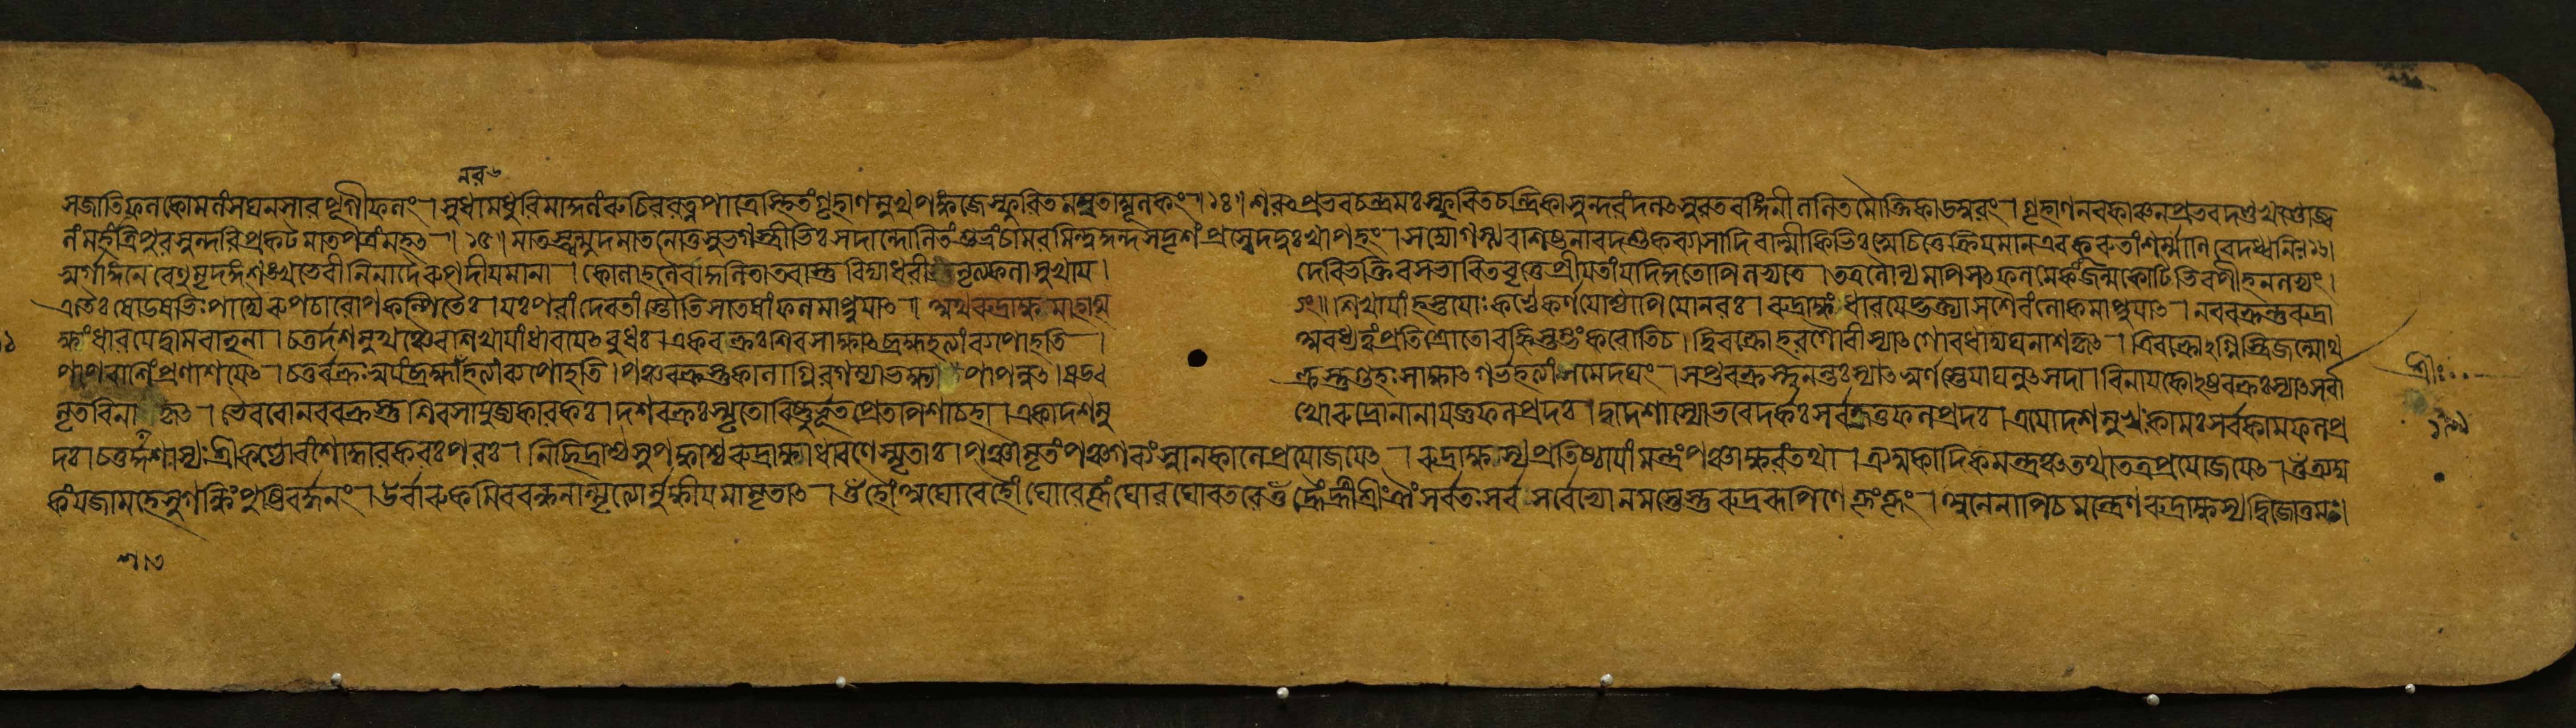 সজাতিফলকোমলংসঘনসারপূগীফলং । সুধামধুরিমাঙ্গলংরুচিররত্নপাত্রেস্থিতংগৃহাণমুখপঙ্কজেস্ফুরিতমম্বতাম্বূলকং । ১৪ । শরৎপ্রভবচন্দ্রমঃস্ফুরিতচন্দ্রিকাসুন্দরংদলৎসুরতরঙ্গিনীললিতমৌক্তিকাডম্বরং । গৃহাণনবকাঞ্চনপ্রভবদণ্ডখণ্ডোজ্জ্ব
লংমহাত্রিপুরসুন্দরিপ্রকটমাতপত্রংমহৎ । ১৫ । মাতস্ত্বন্মুদমাতনোতুসুভগস্ত্রীভিঃসদান্দোলিতংশুভ্রংচামরমিন্দুকুন্দসদৃশংপ্রস্বেদদুঃখাপহং । সদ্যোগস্ত্যবশিষ্ঠনারদশুকব্যাসাদিবাল্মীকিভিঃস্বেচিত্তেক্রিয়মাণএবকুরুতাংশর্ম্মাণিবেদধ্বনিঃ১৬।
স্বর্গাঙ্গনেবেণুমৃদঙ্গশঙ্খভেরীনিনাদৈরুপগীয়মানা । কোলাহলৈরাকলিতাতবাস্তুবিদ্যাধরীনৃত্যকলাসুখায় । দেবিভক্তিরসভাবিতবৃত্তেপ্রীয়তাংযদিকুতোপিলভ্যতে । তত্রলৌল্যমপিসৎফলমেকংজন্মকোটিভিরপীহনলভ্যং ।
এতৈঃষোডষভিঃপদ্যৈরুপচারোপকল্পিতৈঃ । যঃপরাংদেবতাংস্তৌতিসতেষাংফলমাপ্নুয়াৎ ॥ অথরুদ্রাক্ষমাহাত্ম্যং ॥ শিখায়াংহস্তয়োঃকণ্ঠেকর্ণয়োশ্চাপিযোনরঃ । রুদ্রাক্ষংধারয়েদ্ভক্ত্যাসশৈবংলোকমাপ্নুয়াৎ । নববক্রন্তুরুদ্রা
ক্ষংধারয়েদ্বামবাহুনা । চতুর্দশমুখঞ্চৈবশিখায়াংধারয়েৎবুধঃ । একবক্রঃশিবসাক্ষাৎব্রহ্মহত্যাংব্যপোহতি । অবধ্যত্বংপ্রতিশ্রোতোবহ্নিস্তম্ভংকরোতিচ । দ্বিবক্রোহরগৌরীস্যাৎগোবধাদ্যঘনাশকৃৎ । ত্রিবক্রোঽগ্নিস্ত্রিজন্মোত্থ
পাপরাশিংপ্রণাশয়েৎ । চতুর্বক্রঃস্বয়ংব্রহ্মাহত্যাংব্যপোহতি । পঞ্চবক্রস্তুকালাগ্নিরগম্যাভক্ষ্যপাপনুৎ । ষড্ব ক্রস্তুগুহঃসাক্ষাৎগর্ভহত্যাংসমেদঘং । সপ্তবক্রস্ত্বনন্তঃস্যাৎস্বর্ণস্তেয়াঘনুৎসদা । বিনায়কোঽষ্টবক্রঃস্যাৎসর্বা
নৃতবিনা কৃৎ । ভৈরবোনববক্রস্তুশিবসাযুজ্যকারকঃ । দশবক্রঃস্মৃতোবিষ্ণুর্ভূতপ্রেতাপিশাচহা । একাদশমু খোরুদ্রোনানাযজ্ঞফলপ্রদঃ । দ্বাদশাস্যোভবেদর্কঃসর্বক্রতুফলপ্রদঃ । ত্রয়োদশমুখঃকামঃসর্বকামফলপ্র
দঃ । চতুর্দ্দশাস্যঃশ্রীকণ্ঠোবংশোদ্ধারকরঃপরঃ । নিচ্ছিদ্রাশ্চসুপক্বাশ্চরুদ্রাক্ষাধারণেস্মৃতাঃ । পঞ্চামৃতংপঞ্চগব্যংস্নানকালেপ্রয়োজয়েৎ । রুদ্রাক্ষস্যপ্রতিষ্ঠায়াংমন্ত্রংপঞ্চাক্ষরংতথা । ত্র্যম্বকাদিকমন্ত্রঞ্চতথাতত্রপ্রয়োজয়েৎ । ওঁত্র্যম্ব
কংযজামহেসুগন্ধিংপুষ্টিবর্দ্ধনং । উর্বারুকমিববন্ধনান্মৃত্যোর্মুক্ষীয়মামৃতাৎ । ওঁহোঁঅঘোরেহোঁঘোরে ঘোরঘোরতরেওঁ সর্বতঃসর্বসর্বেভ্যোনমস্তেস্তুরুদ্ররূপিণে । অনেনাপিচমন্ত্রেণরুদ্রাক্ষস্যদ্বিজোত্তমঃ।
শ্রীঃ